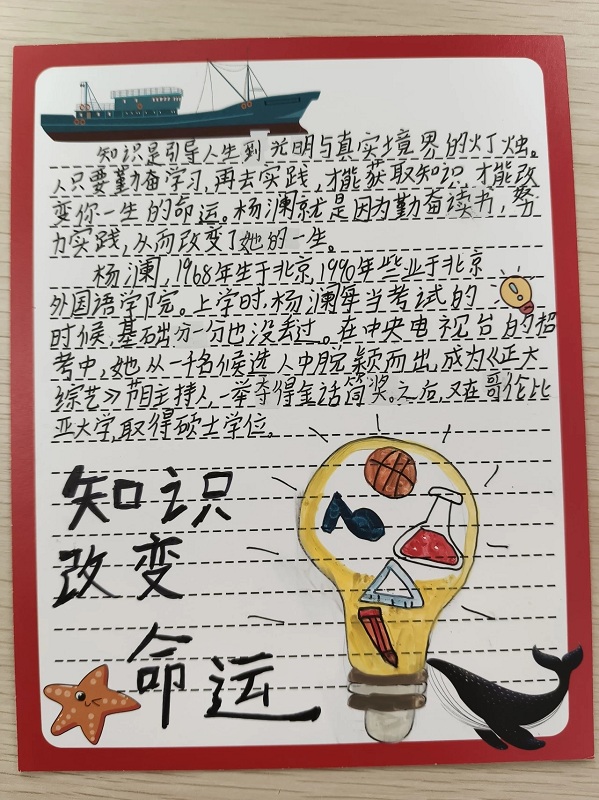 知识是引导人生到光明与真实境界的灯烛。
人只要勤奋学习,再去实践,才能获取知识,才能改
变你一生的命运。杨澜就是因为勤奋读书,努
力实践,从而改变了她的一生。
杨澜,1968年生于北京,1990年些业于北京
外国语学院。上学时,杨澜每当考试的
时候,基础分一分也没丢过。在中央电视台的招
考中,她从一千名候选人中脱颖而出,成为《正大
综艺》节目主持人,一举夺得金话筒奖。之后,又在哥伦比
亚大学,取得硕士学位。
知识
改变
命运